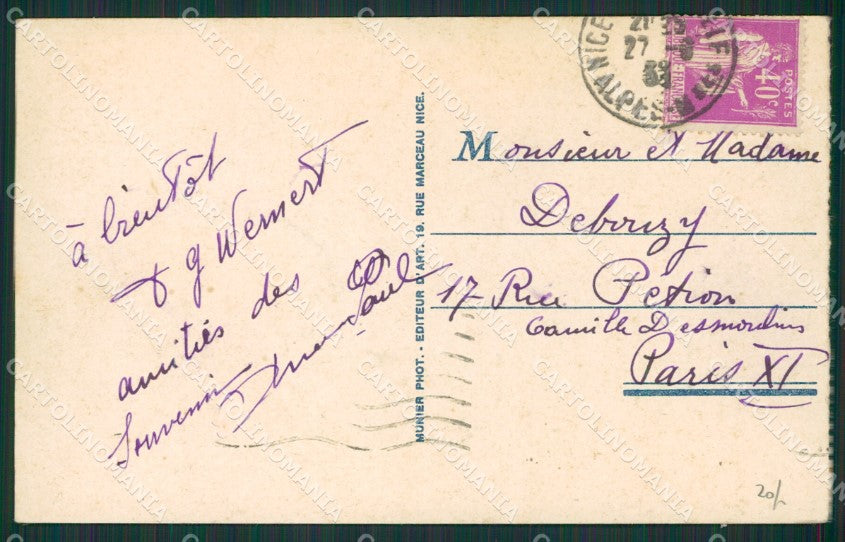 à bientôt
g Wernert
amitiés des
Souvenir
MUNIER PHOT. - EDITEUR D'ART. 19, RUE MARCEAU NICE.
NICE
27
ALPES-M
POSTES
40c
Monsieur et Madame
Debouzy
17 Rue Petion
Camille Desmoulins
Paris XI
20/
CARTOLINOMANIA